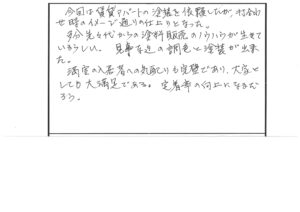 今回は賃貸アパートの塗装を依頼したが、打合わ
せ時のイメージ通りの仕上りとなった。
多分先々代からの塗料販売のノウハウが生きて
いるらしい。見事な迄の調色と塗装が出来
た。
満室の入居者への気配りも完璧であり、大家と
しても大満足である。定着率の向上になるだ
ろう。